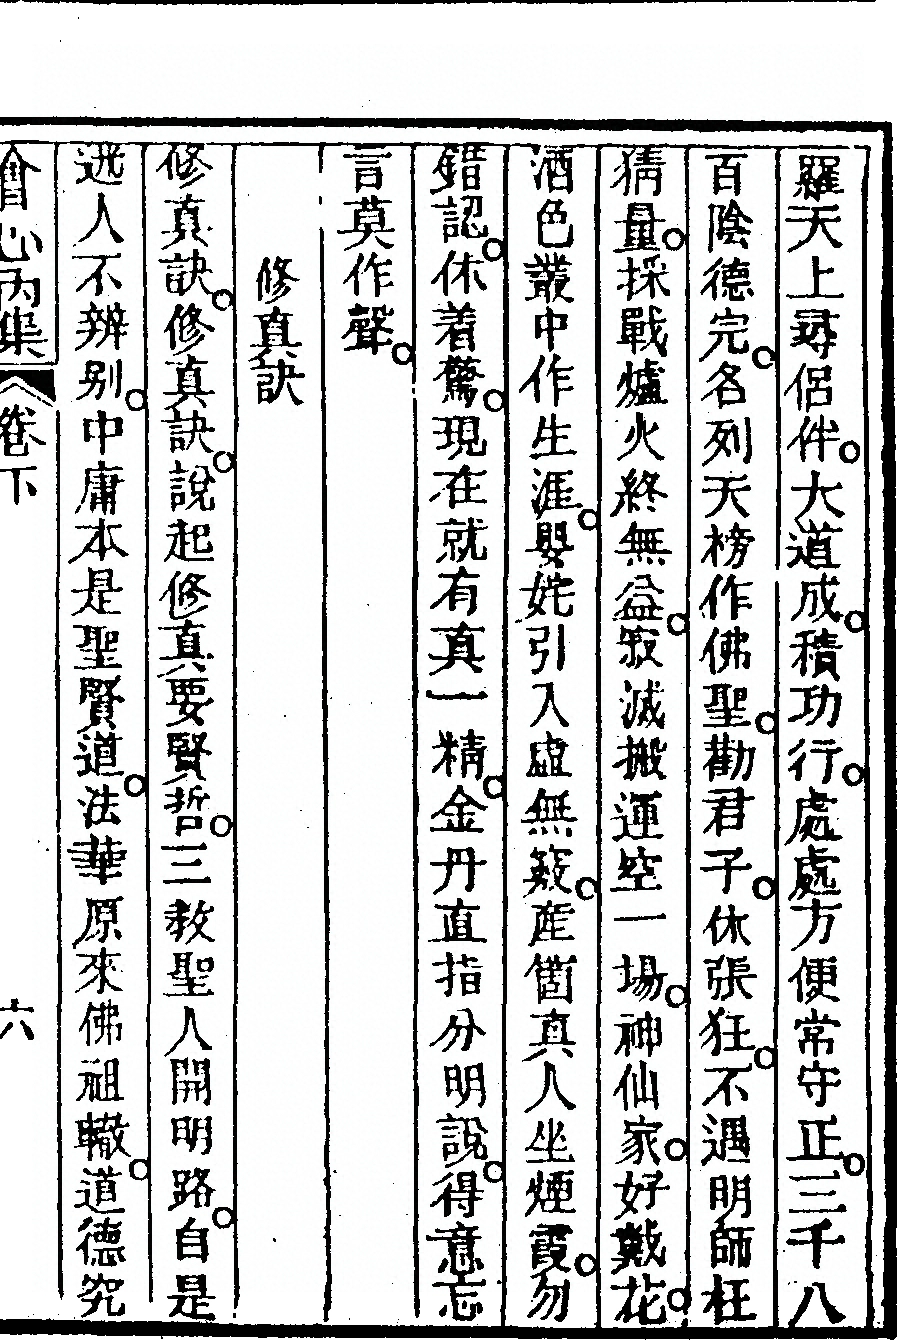 羅天上尋侶伴○大道成○積功行○處處方便常守正○三千八
百陰德完○名列天榜作佛聖○勸君子○休張狂○不遇明師枉
猜量○採戰爐火終無益○寂滅搬運空一場○神仙家○好戴花○
酒色叢中作生涯○嬰姹引入虛無竅○産箇真人坐煙霞○勿
錯認○休着驚○現在就有真一精○金丹直指分明說○得意忘
言莫作聲○
修真訣
修真訣○修真訣○說起修真要賢哲○三教聖人開明路○自是
迷人不辨别○中庸本是聖賢道○法華原來佛祖轍○道德究
會心内集
卷下
六